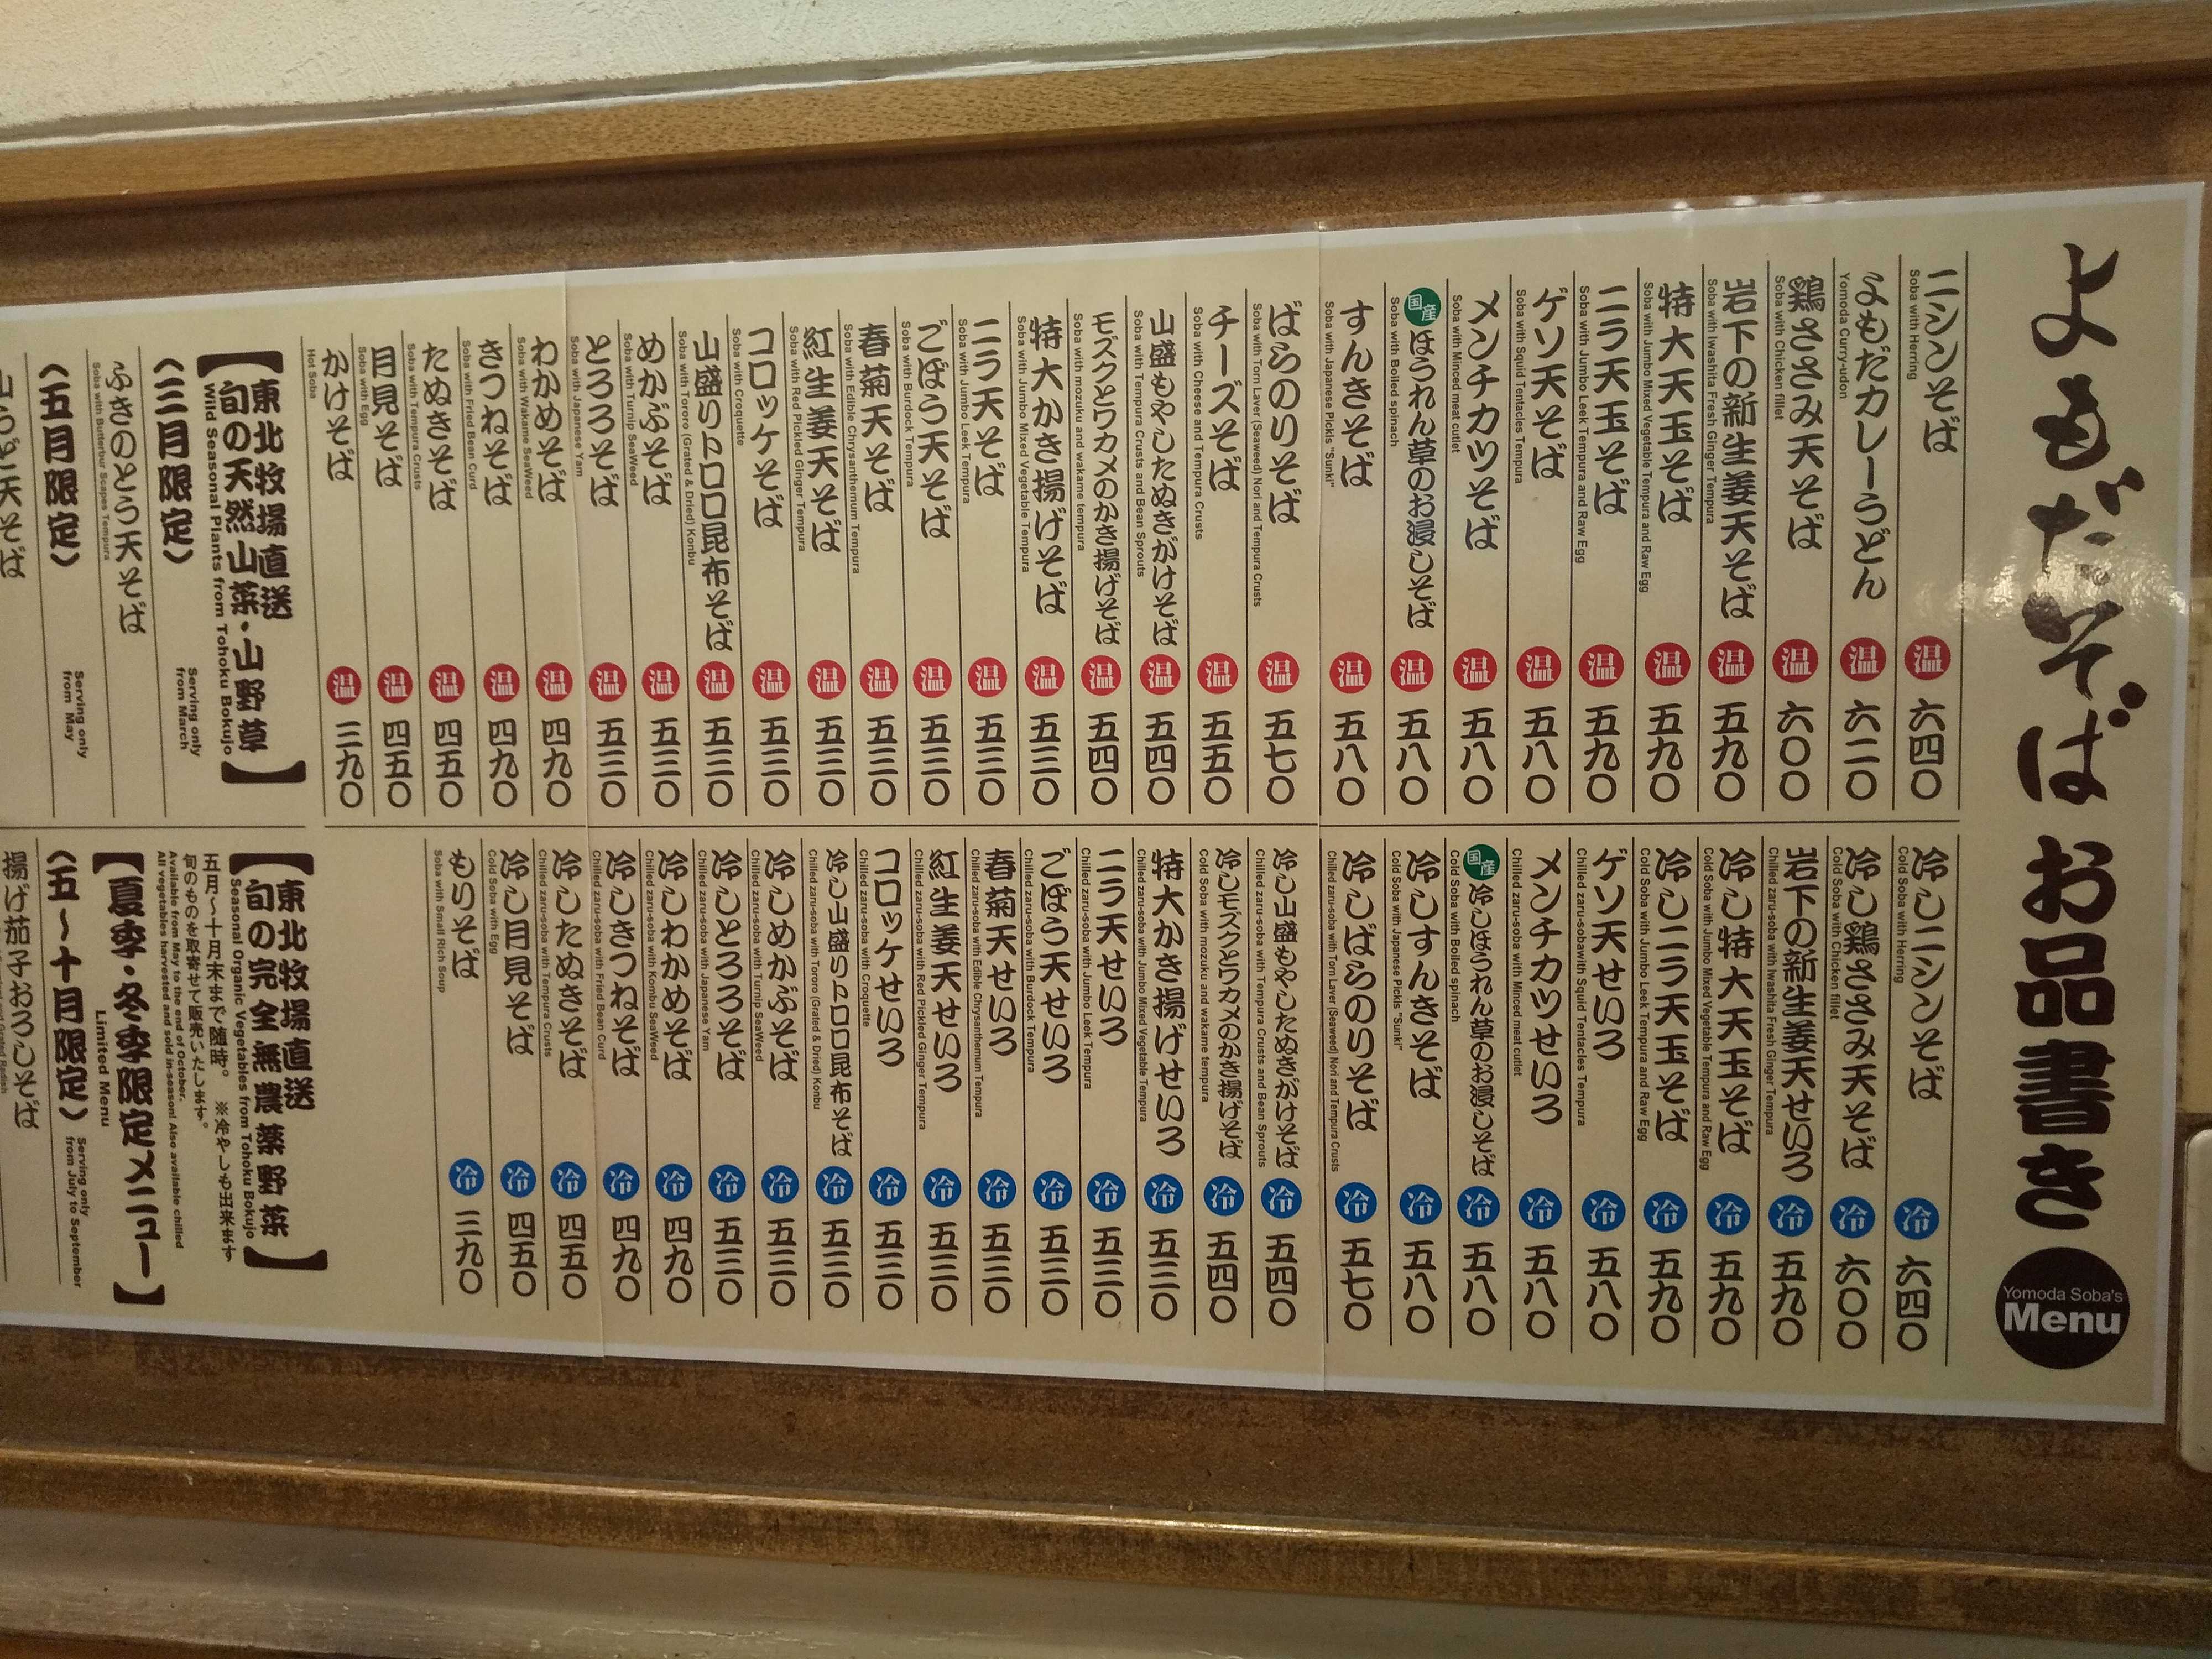 よもだそば お品書き
Yomoda Soba's
Menu
ニシンそば 温 六四〇
Soba with Herring
よもだカレーうどん 温 六二〇
Yomoda Curry-udon
鶏ささみ天そば 温 六〇〇
Soba with Chicken fillet
岩下の新生姜天そば 温 五九〇
Soba with Iwashita Fresh Ginger Tempura
特大天玉そば 温 五九〇
Soba with Jumbo Mixed Vegetable Tempura and Raw Egg
ニラ天玉そば 温 五九〇
Soba with Jumbo Leek Tempura and Raw Egg
ゲソ天そば 温 五八〇
Soba with Squid Tentacles Tempura
メンチカツそば 温 五八〇
Soba with Minced meat cutlet
国産 ほうれん草のお浸しそば 温 五八〇
Soba with Boiled spinach
すんきそば 温 五八〇
Soba with Japanese Pickls "Sunki"
ばらのりそば 温 五七〇
Soba with Torn Laver (Seaweed) Nori and Tempura Crusts
チーズそば 温 五五〇
Soba with Cheese and Tempura Crusts
山盛もやしたぬきがけそば 温 五四〇
Soba with Tempura Crusts and Bean Sprouts
モズクとワカメのかき揚げそば 温 五四〇
Soba with mozuku and wakame tempura
特大かき揚げそば 温 五三〇
Soba with Jumbo Mixed Vegetable Tempura
ニラ天そば 温 五三〇
Soba with Jumbo Leek Tempura
ごぼう天そば 温 五三〇
Soba with Burdock Tempura
春菊天そば 温 五三〇
Soba with Edible Chrysanthemum Tempura
紅生姜天そば 温 五三〇
Soba with Red Pickled Ginger Tempura
コロッケそば 温 五三〇
Soba with Croquette
山盛りトロロ昆布そば 温 五三〇
Soba with Tororo (Grated & Dried) Konbu
めかぶそば 温 五三〇
Soba with Turnip SeaWeed
とろろそば 温 五三〇
Soba with Japanese Yam
わかめそば 温 四九〇
Soba with Wakame SeaWeed
きつねそば 温 四九〇
Soba with Fried Bean Curd
たぬきそば 温 四五〇
Soba with Tempura Crusts
月見そば 温 四五〇
Soba with Egg
かけそば 温 三九〇
Hot Soba
【東北牧場直送
旬の天然山菜・山野草】
Wild Seasonal Plants from Tohoku Bokujo
〈三月限定〉
Serving only
from March
ふきのとう天そば
Soba with Butterbur Scapes Tempura
〈五月限定〉
Serving only
from May
山うど天そば
冷しニシンそば 冷 六四〇
Cold Soba with Herring
冷し鶏ささみ天そば 冷 六〇〇
Cold Soba with Chicken fillet
岩下の新生姜天せいろ 冷 五九〇
Chilled zaru-soba with Iwashita Fresh Ginger Tempura
冷し特大天玉そば 冷 五九〇
Cold Soba with Jumbo Mixed Vegetable Tempura and Raw Egg
冷しニラ天玉そば 冷 五九〇
Cold Soba with Jumbo Leek Tempura and Raw Egg
ゲソ天せいろ 冷 五八〇
Chilled zaru-sobawith Squid Tentacles Tempura
メンチカツせいろ 冷 五八〇
Chilled zaru-soba with Minced meat cutlet
国産 冷しほうれん草のお浸しそば 冷 五八〇
Cold Soba with Boiled spinach
冷しすんきそば 冷 五八〇
Cold Soba with Japanese Pickls "Sunki"
冷しばらのりそば 冷 五七〇
Chilled zaru-soba with Torn Laver (Seaweed) Nori and Tempura Crusts
冷し山盛もやしたぬきがけそば 冷 五四〇
Chilled zaru-soba with Tempura Crusts and Bean Sprouts
冷しモズクとワカメのかき揚げそば 冷 五四〇
Cold Soba with mozuku and wakame tempura
特大かき揚げせいろ 冷 五三〇
Chilled zaru-soba with Jumbo Mixed Vegetable Tempura
ニラ天せいろ 冷 五三〇
Chilled zaru-soba with Jumbo Leek Tempura
ごぼう天せいろ 冷 五三〇
Chilled zaru-soba with Burdock Tempura
春菊天せいろ 冷 五三〇
Chilled zaru-soba with Edible Chrysanthemum Tempura
紅生姜天せいろ 冷 五三〇
Chilled zaru-soba with Red Pickled Ginger Tempura
コロッケせいろ 冷 五三〇
Chilled zaru-soba with Croquette
冷し山盛りトロロ昆布そば 冷 五三〇
Chilled zaru-soba with Tororo (Grated & Dried) Konbu
冷しめかぶそば 冷 五三〇
Chilled zaru-soba with Turnip SeaWeed
冷しとろろそば 冷 五三〇
Chilled zaru-soba with Japanese Yam
冷しわかめそば 冷 四九〇
Chilled zaru-soba with Kombu SeaWeed
冷しきつねそば 冷 四九〇
Chilled zaru-soba with Fried Bean Curd
冷したぬきそば 冷 四五〇
Chilled zaru-soba with Tempura Crusts
冷し月見そば 冷 四五〇
Cold Soba with Egg
もりそば 冷 三九〇
Soba with Small Rich Soup
【東北牧場直送
旬の完全無農薬野菜】
Seasonal Organic Vegetables from Tohoku Bokujo
五月～十月末まで随時。 ※冷やしも出来ます
旬のものを取寄せて販売いたします。
Available from May to the end of October.
All vegetables harvested and sold in-season! Also available chilled
【夏季・冬季限定メニュー】
Limited Menu
〈五～十月限定〉
Serving only
from July to September
揚げ茄子おろしそば